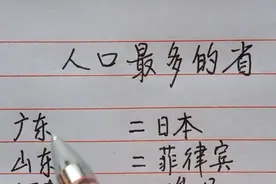 人口最多的省
广东 = 日本
山东 = 菲律宾